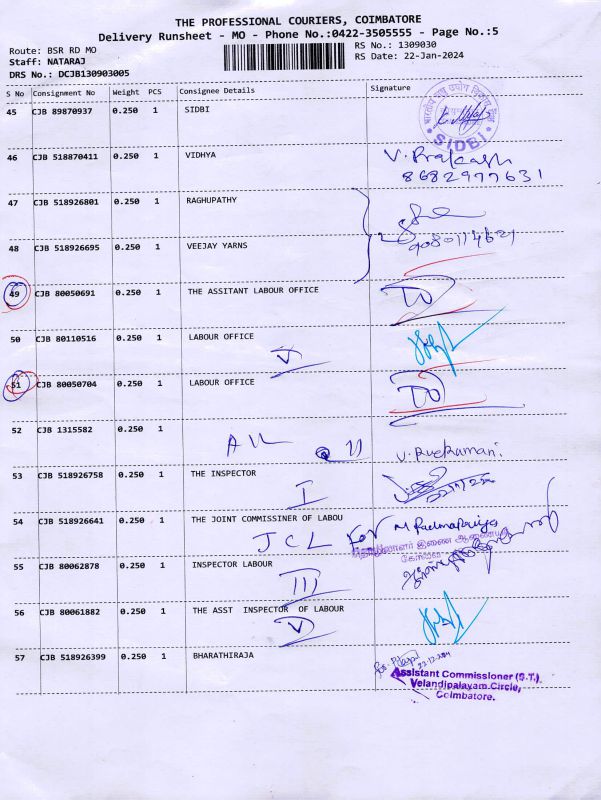 THE PROFESSIONAL COURIERS, COIMBATORE
Delivery Runsheet - MO - Phone No.:0422-3505555 - Page No.:5
Route: BSR RD MO
RS No.: 1309030
Staff: NATARAJ
RS Date: 22-Jan-2024
DRS No.: DCJB130903005
S No Consignment No Weight PCS Consignee Details Signature
45 CJB 89870937 0.250 1 SIDBI
SIDBI
46 CJB 518870411 0.250 1 VIDHYA V. Prakash
8682977631
47 CJB 518926801 0.250 1 RAGHUPATHY
48 CJB 518926695 0.250 1 VEEJAY YARNS
49 CJB 80050691 0.250 1 THE ASSITANT LABOUR OFFICE
50 CJB 80110516 0.250 1 LABOUR OFFICE
V
51 CJB 80050704 0.250 1 LABOUR OFFICE
52 CJB 1315582 0.250 1
53 CJB 518926758 0.250 1 THE INSPECTOR
I
54 CJB 518926641 0.250 1 THE JOINT COMMISSINER OF LABOU
JCL For M Padmapriya
இணை ஆணையர்
கோவை
55 CJB 80062878 0.250 1 INSPECTOR LABOUR
III
56 CJB 80061882 0.250 1 THE ASST INSPECTOR OF LABOUR
V
57 CJB 518926399 0.250 1 BHARATHIRAJA
Assistant Commissioner (S.T.)
Velandipalayam Circle,
Coimbatore.